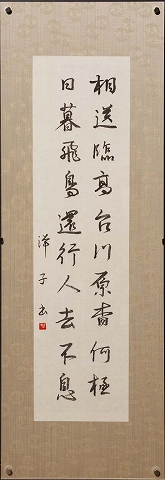 相送臨高台川原杳何極
日暮飛鳥還行人去不息
澤子書